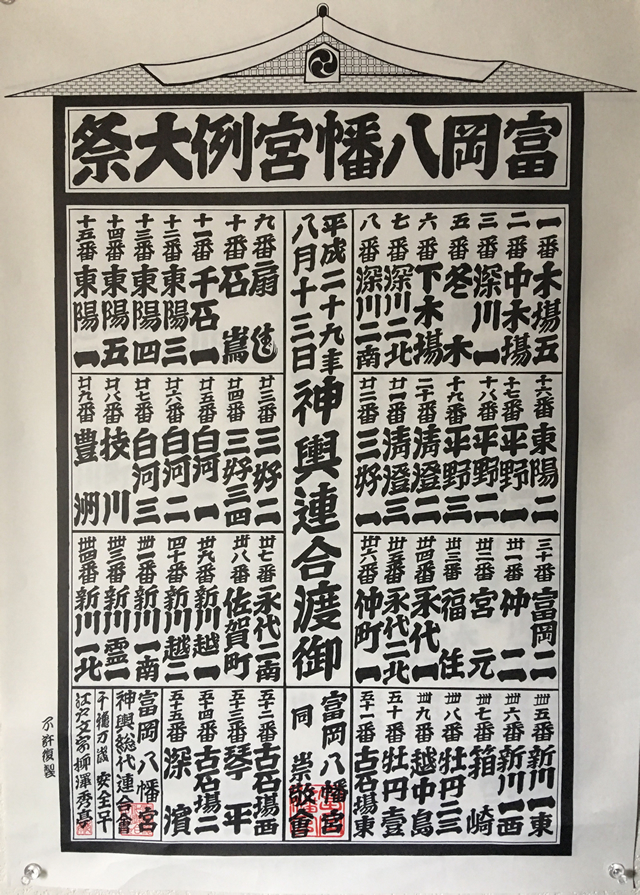 富岡八幡宮例大祭
一番 木場五
二番 中木場
三番 深川一
五番 冬木
六番 下木場
七番 深川二北
八番 深川二南
平成二十九年
八月十三日
神輿連合渡御
九番 扇
十番 石嶌
十一番 千石一
十二番 東陽三
十三番 東陽四
十四番 東陽五
十五番 東陽一
十六番 東陽二
十七番 平野一
十八番 平野二
十九番 平野三
二十番 清澄二
廿一番 清澄三
廿二番 三好一
廿三番 三好二
廿四番 三好三四
廿五番 白河一
廿六番 白河二
廿七番 白河三
廿八番 枝川
廿九番 豊洲
三十番 富岡二
卅一番 仲二
卅二番 宮元
卅三番 福住
卅四番 永代一
卅五番 永代二北
卅六番 仲町一
卅七番 永代二南
卅八番 佐賀町
卅九番 新川越一
四十番 新川越二
卌一番 新川一南
卌三番 新川霊二
卌四番 新川一北
卌五番 新川一東
卌六番 新川一西
卌七番 箱崎
卌八番 牡丹二三
卌九番 越中島
五十番 牡丹壹
五十一番 古石場東
富岡八幡宮
同 崇敬會
五十二番 古石場西
五十三番 琴平
五十四番 古石場二
五十五番 深濱
富岡八幡宮
神輿総代連合會
千穐万歳 安全
江戸文字柳澤秀亭
不許復製